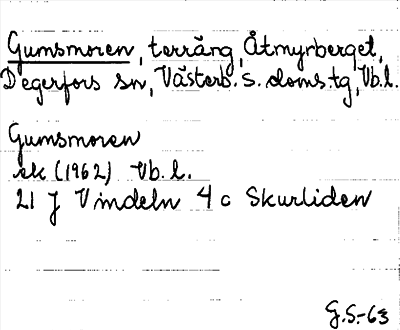 Gumsmoren, terräng, Åtmyrberget,
Degerfors sn, Västerb. s. doms.tg, Vb.l.
Gumsmoren
ek (1962) Vb. l.
21 J Vindeln 4 c Skurliden
G.S.-63